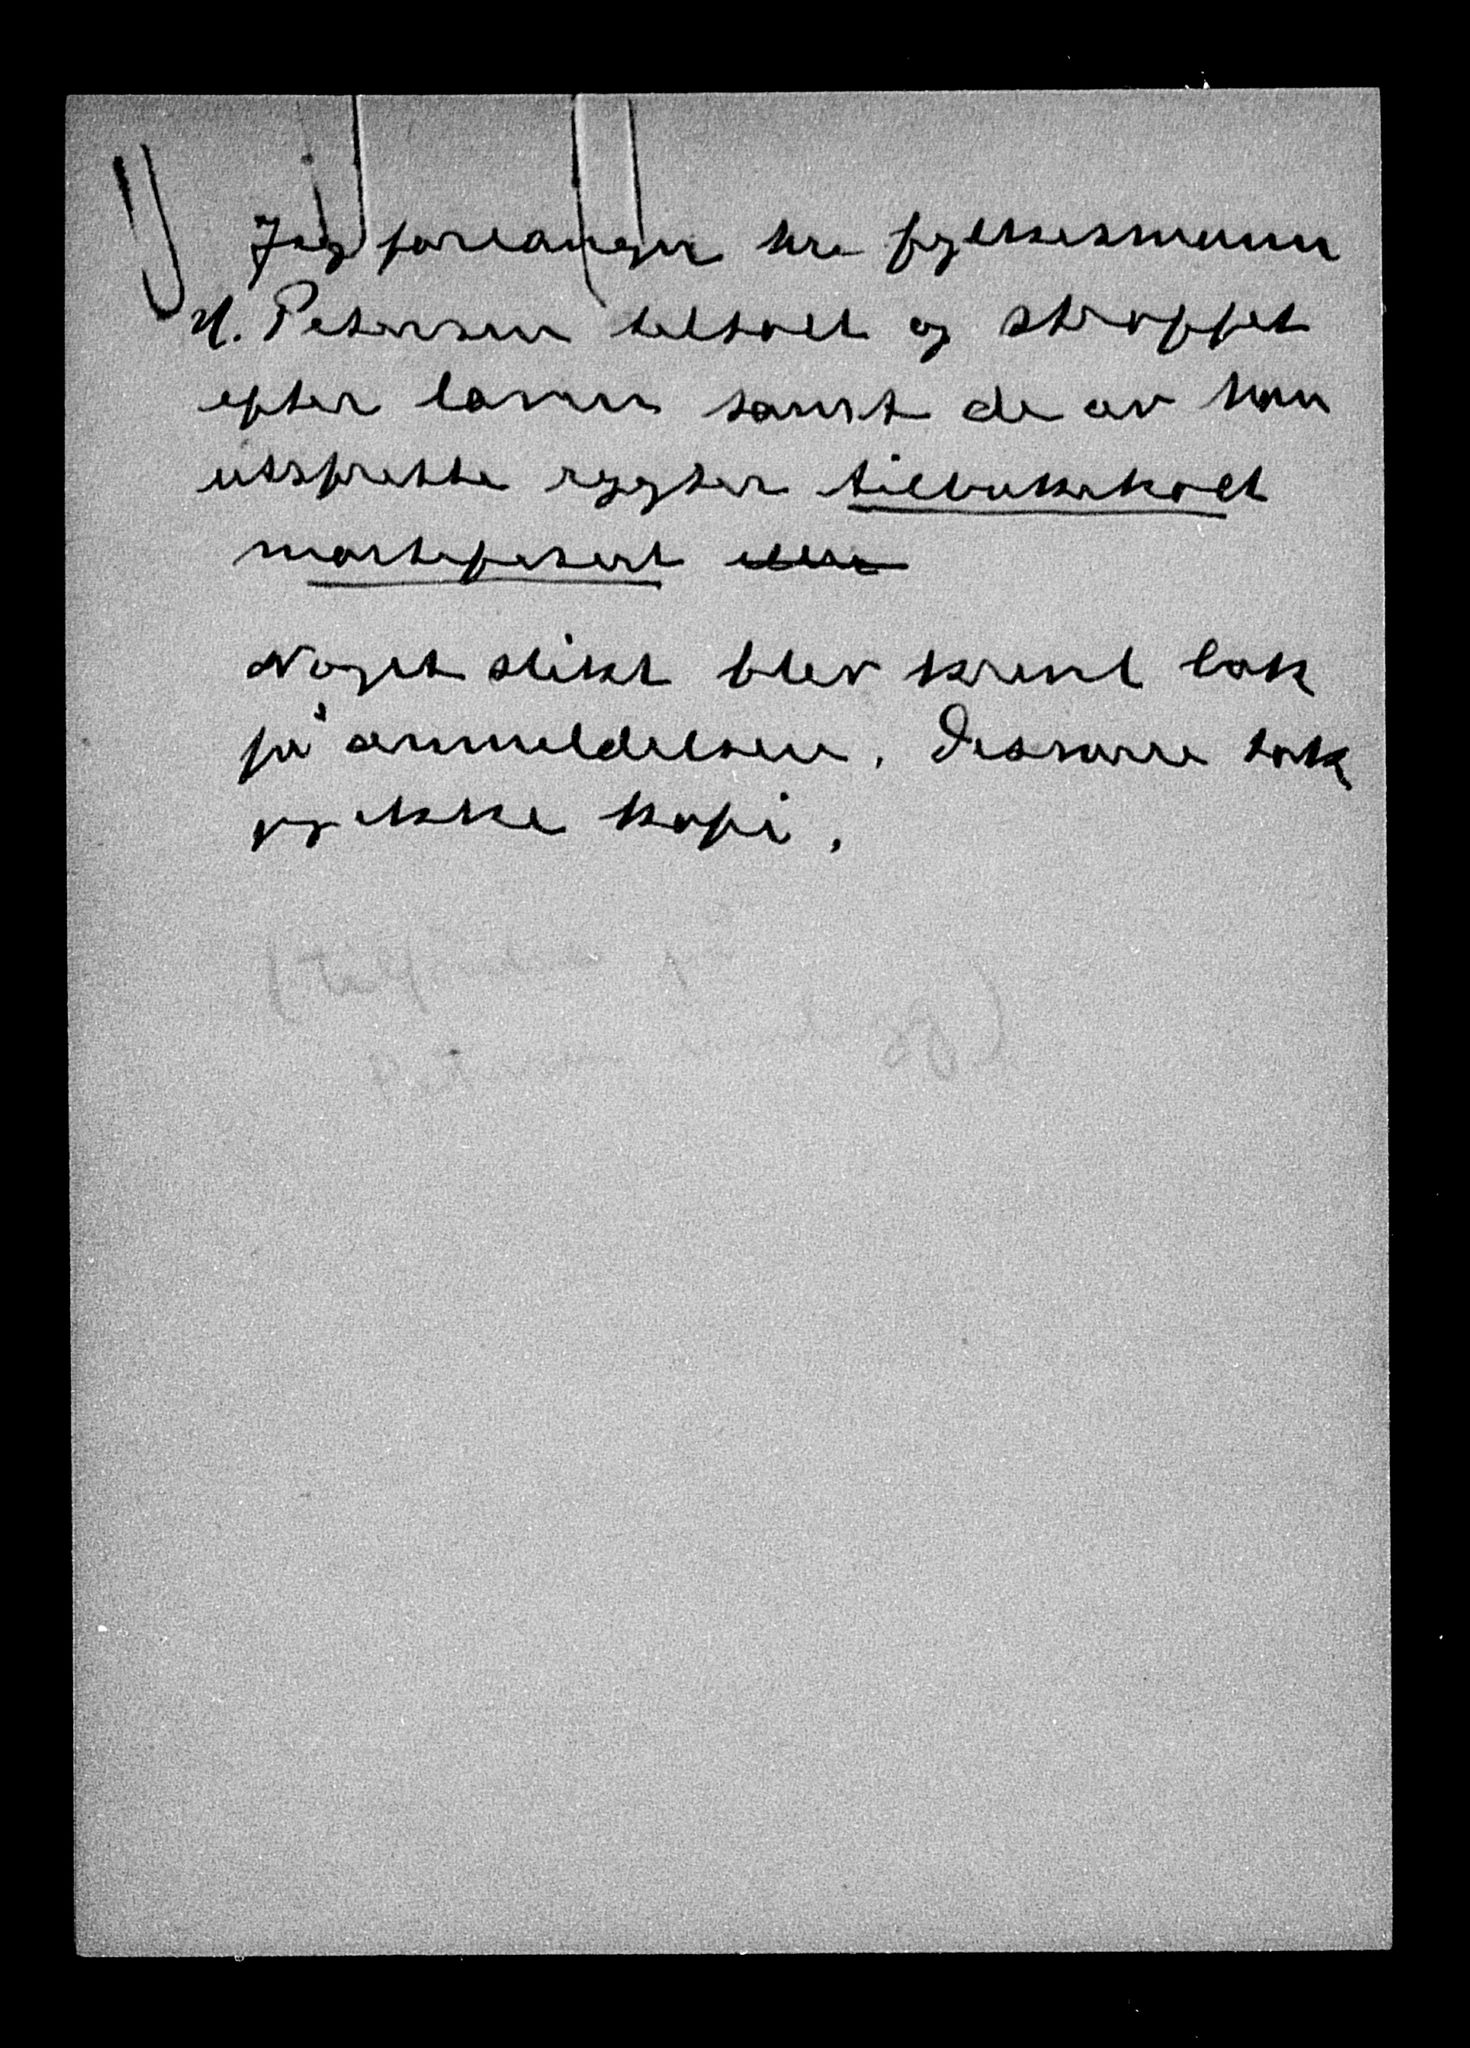 Jeg forlanger hrr fylkesmann
H. Petersen tiltalt og straffet
efter loven samt de av ham
utspredte rygter tilbakekalt
mortifisert
Noget slikt blev skrevet bak
på anmeldelsen. Desverre tok
jeg ikke kopi.
på
Petersen